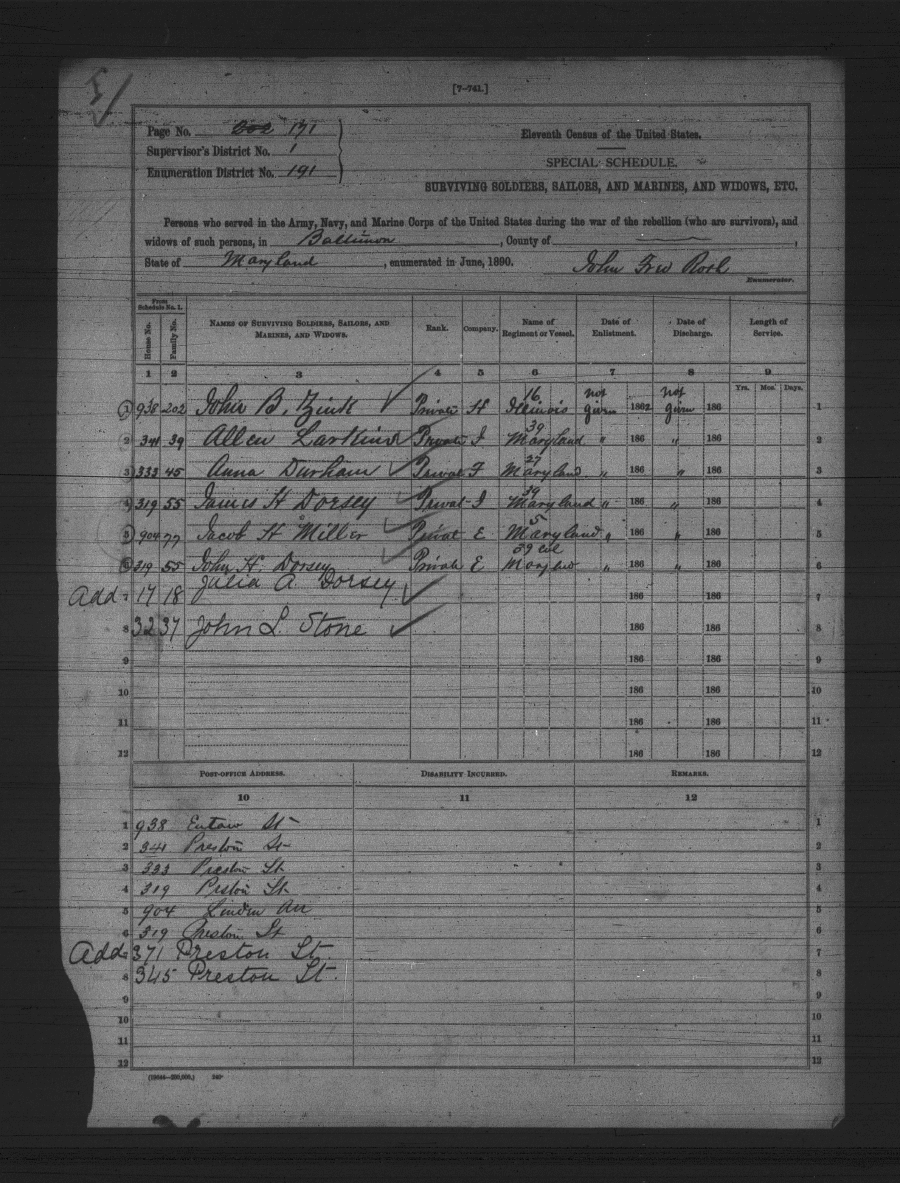 5/
[7-741.]
Page No. 202 171
Supervisor's District No. 1
Enumeration District No. 191
Eleventh Census of the United States.
SPECIAL SCHEDULE.
SURVIVING SOLDIERS, SAILORS, AND MARINES, AND WIDOWS, ETC.
Persons who served in the Army, Navy, and Marine Corps of the United States during the war of the rebellion (who are survivors), and
widows of such persons, in Baltimore, County of ,
State of Maryland, enumerated in June, 1890. John Roth
Enumerator.
From Schedule No. 1.
House No. Family No. NAMES OF SURVIVING SOLDIERS, SAILORS, AND MARINES, AND WIDOWS. Rank. Company. Name of Regiment or Vessel. Date of Enlistment. Date of Discharge. Length of Service.
1 2 3 4 5 6 7 8 9
Yrs. Mos. Days.
1 938 202 John B. Zink Private H 16 Illinois not given 1862 not given 186 1
2 341 39 Allen Larkins Private I 39 Maryland " 186 " 186 2
3 333 45 Anna Durham Privat F 27 Maryland " 186 " 186 3
4 319 55 James H Dorsey Privat I 39 Maryland " 186 " 186 4
5 904 77 Jacob H Miller Privat E 5 Maryland " 186 " 186 5
6 319 55 John H. Dorsey Private E 39 col " 186 " 186 6
Add 7 17 18 Julia A Dorsey 186 186 7
8 32 37 John L. Stone 186 186 8
9 186 186 9
10 186 186 10
11 186 186 11
12 186 186 12
POST-OFFICE ADDRESS. DISABILITY INCURRED. REMARKS.
10 11 12
1 938 Eutaw St 1
2 341 Preston St 2
3 333 Preston St 3
4 319 Preston St 4
5 904 Linden Av 5
6 319 Preston St 6
Add 7 371 Preston St. 7
8 345 Preston St. 8
9 9
10 10
11 11
12 12